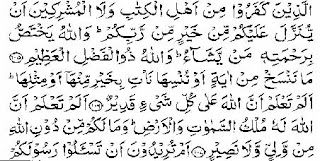 الَّذِيْنَ كَفَرُوْا مِنْ اَهْلِ الْكِتٰبِ وَلَا الْمُشْرِكِيْنَ اَنْ
يُّنَزَّلَ عَلَيْكُمْ مِّنْ خَيْرٍ مِّنْ رَّبِّكُمْ ؕ وَاللّٰهُ يَخْتَصُّ
بِرَحْمَتِهٖ مَنْ يَّشَآءُ ؕ وَاللّٰهُ ذُو الْفَضْلِ الْعَظِيْمِ ﴿۱۰۵﴾
مَا نَنْسَخْ مِنْ اٰيَةٍ اَوْ نُنْسِهَا نَاْتِ بِخَيْرٍ مِّنْهَاۤ اَوْ مِثْلِهَا ؕ
اَلَمْ تَعْلَمْ اَنَّ اللّٰهَ عَلٰى كُلِّ شَيْءٍ قَدِيْرٌ ﴿۱۰۶﴾ اَلَمْ تَعْلَمْ اَنَّ
اللّٰهَ لَهٗ مُلْكُ السَّمٰوٰتِ وَالْاَرْضِ ؕ وَمَا لَكُمْ مِّنْ دُوْنِ اللّٰهِ
مِنْ وَّلِيٍّ وَّلَا نَصِيْرٍ ﴿۱۰۷﴾ اَمْ تُرِيْدُوْنَ اَنْ تَسْـَٔلُوْا رَسُوْلَكُمْ